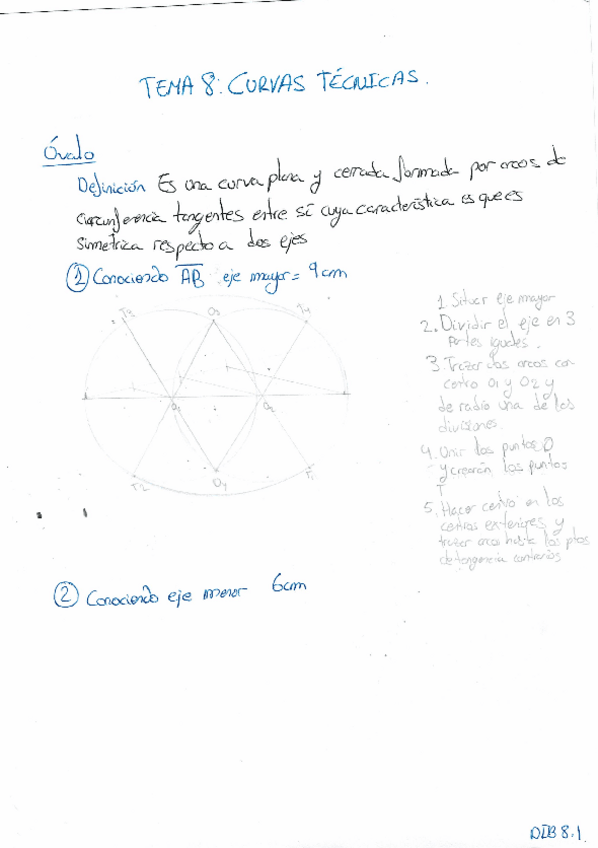 TEMA 8: CURVAS TÉCNICAS.
Óvalo
Definición Es una curva plana y cerrada formada por arcos de
circunferencia tangentes entre sí cuya característica es que es
simetrica respecto a dos ejes
① Conociendo AB eje mayor = 9cm
T3 O3 T4
O1 O2
T2 O4 T1
1 Situar eje mayor
2. Dividir el eje en 3
partes iguales.
3. Trazar dos arcos con
centro O1 y O2 y
de radio una de las
divisiones.
4. Unir los puntos O
y crearán los puntos
T
5. Hacer centro en los
centros exteriores y
trazar arcos hasta los ptos
de tangencia contrarios
② Conociendo eje menor 6cm
DIB 8.1